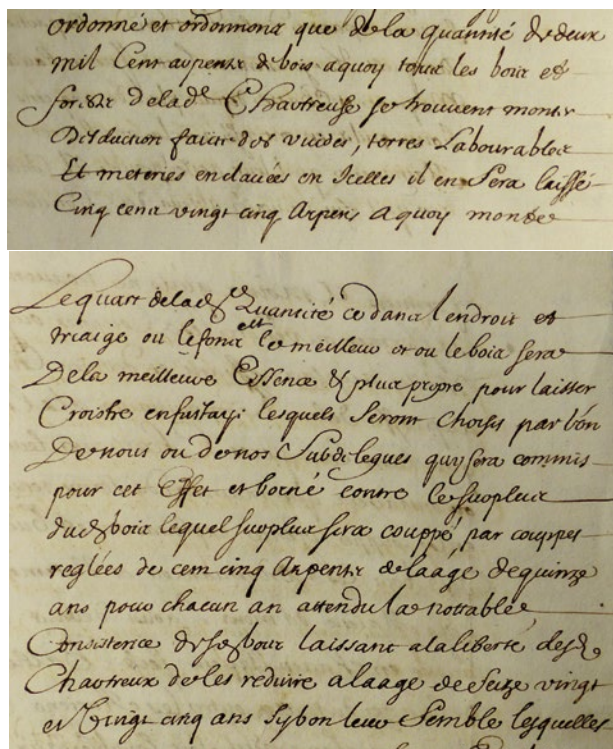 ordonné et ordonnons que de la quantité de deux
mil Cent arpents de bois a quoy tous les bois et
forests de lad.e Chartreuse se trouvent monter
Deduction faite des vuides, terres Labourables
Et meteries enclavées en Icelles il en Sera laissé
Cinq cens vingt cinq Arpens A quoy monte
Le quart de lad. Quantité ce dans lendroit et
triaige ou le fons est le meilleur et ou le bois sera
De la meilleure Essence & plus propre pour laisser
Croistre en fustaye lesquels Seront choisis par lun
De nous ou de nos Subdelegues quy sera commis
pour cet Effet et borné contre le surplus
dud. bois lequel surplus sera couppé par couppes
reglées de cent cinq Arpents de laage de quinze
ans pour chacun an attendu la nottable
Consistence desd. bois laissant a la liberté desd.
Chartreux de les reduire a laage de Seize vingt
et Vingt cinq ans sy bon leur Semble lesquelles